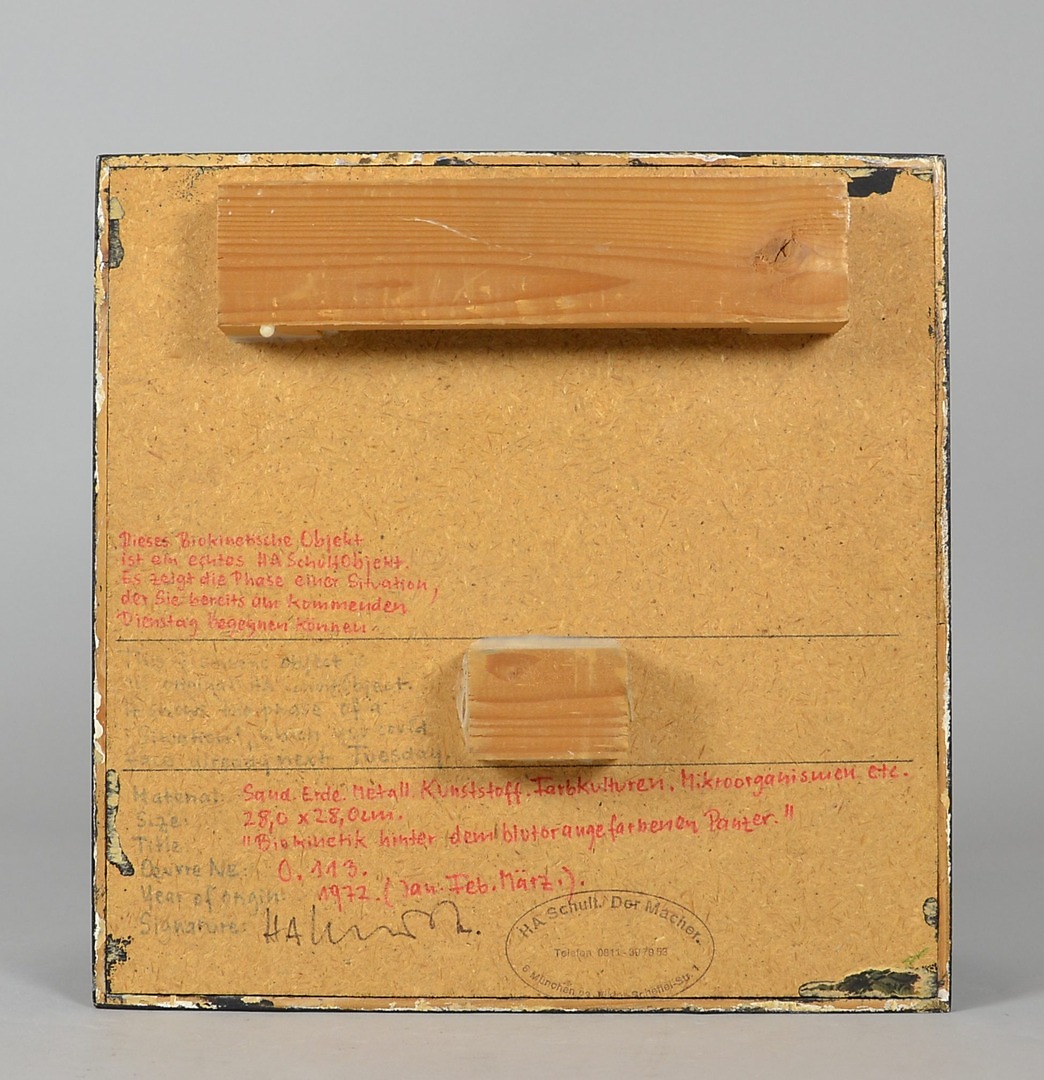 Dieses Biokinetische Objekt
ist ein echtes HA Schult Objekt.
Es zeigt die Phase einer Situation,
der Sie bereits am Kommenden
Dienstag begegnen können.
object
original HA object.
It shows the phase of a
Situation, which you could
face already next Tuesday.
Material: Sand. Erde. Metall. Kunststoff. Farbkulturen. Mikroorganismen etc.
Size: 28,0 x 28,0cm.
Title: "Biokinetik hinter dem blutorangefarbenen Panzer."
Œuvre Ne: O. 113.
Year of origin: 1972. (Jan. Feb. März.).
Signature: HA Schult.
HA Schult. Der Macher.
Telefon 0811-
München